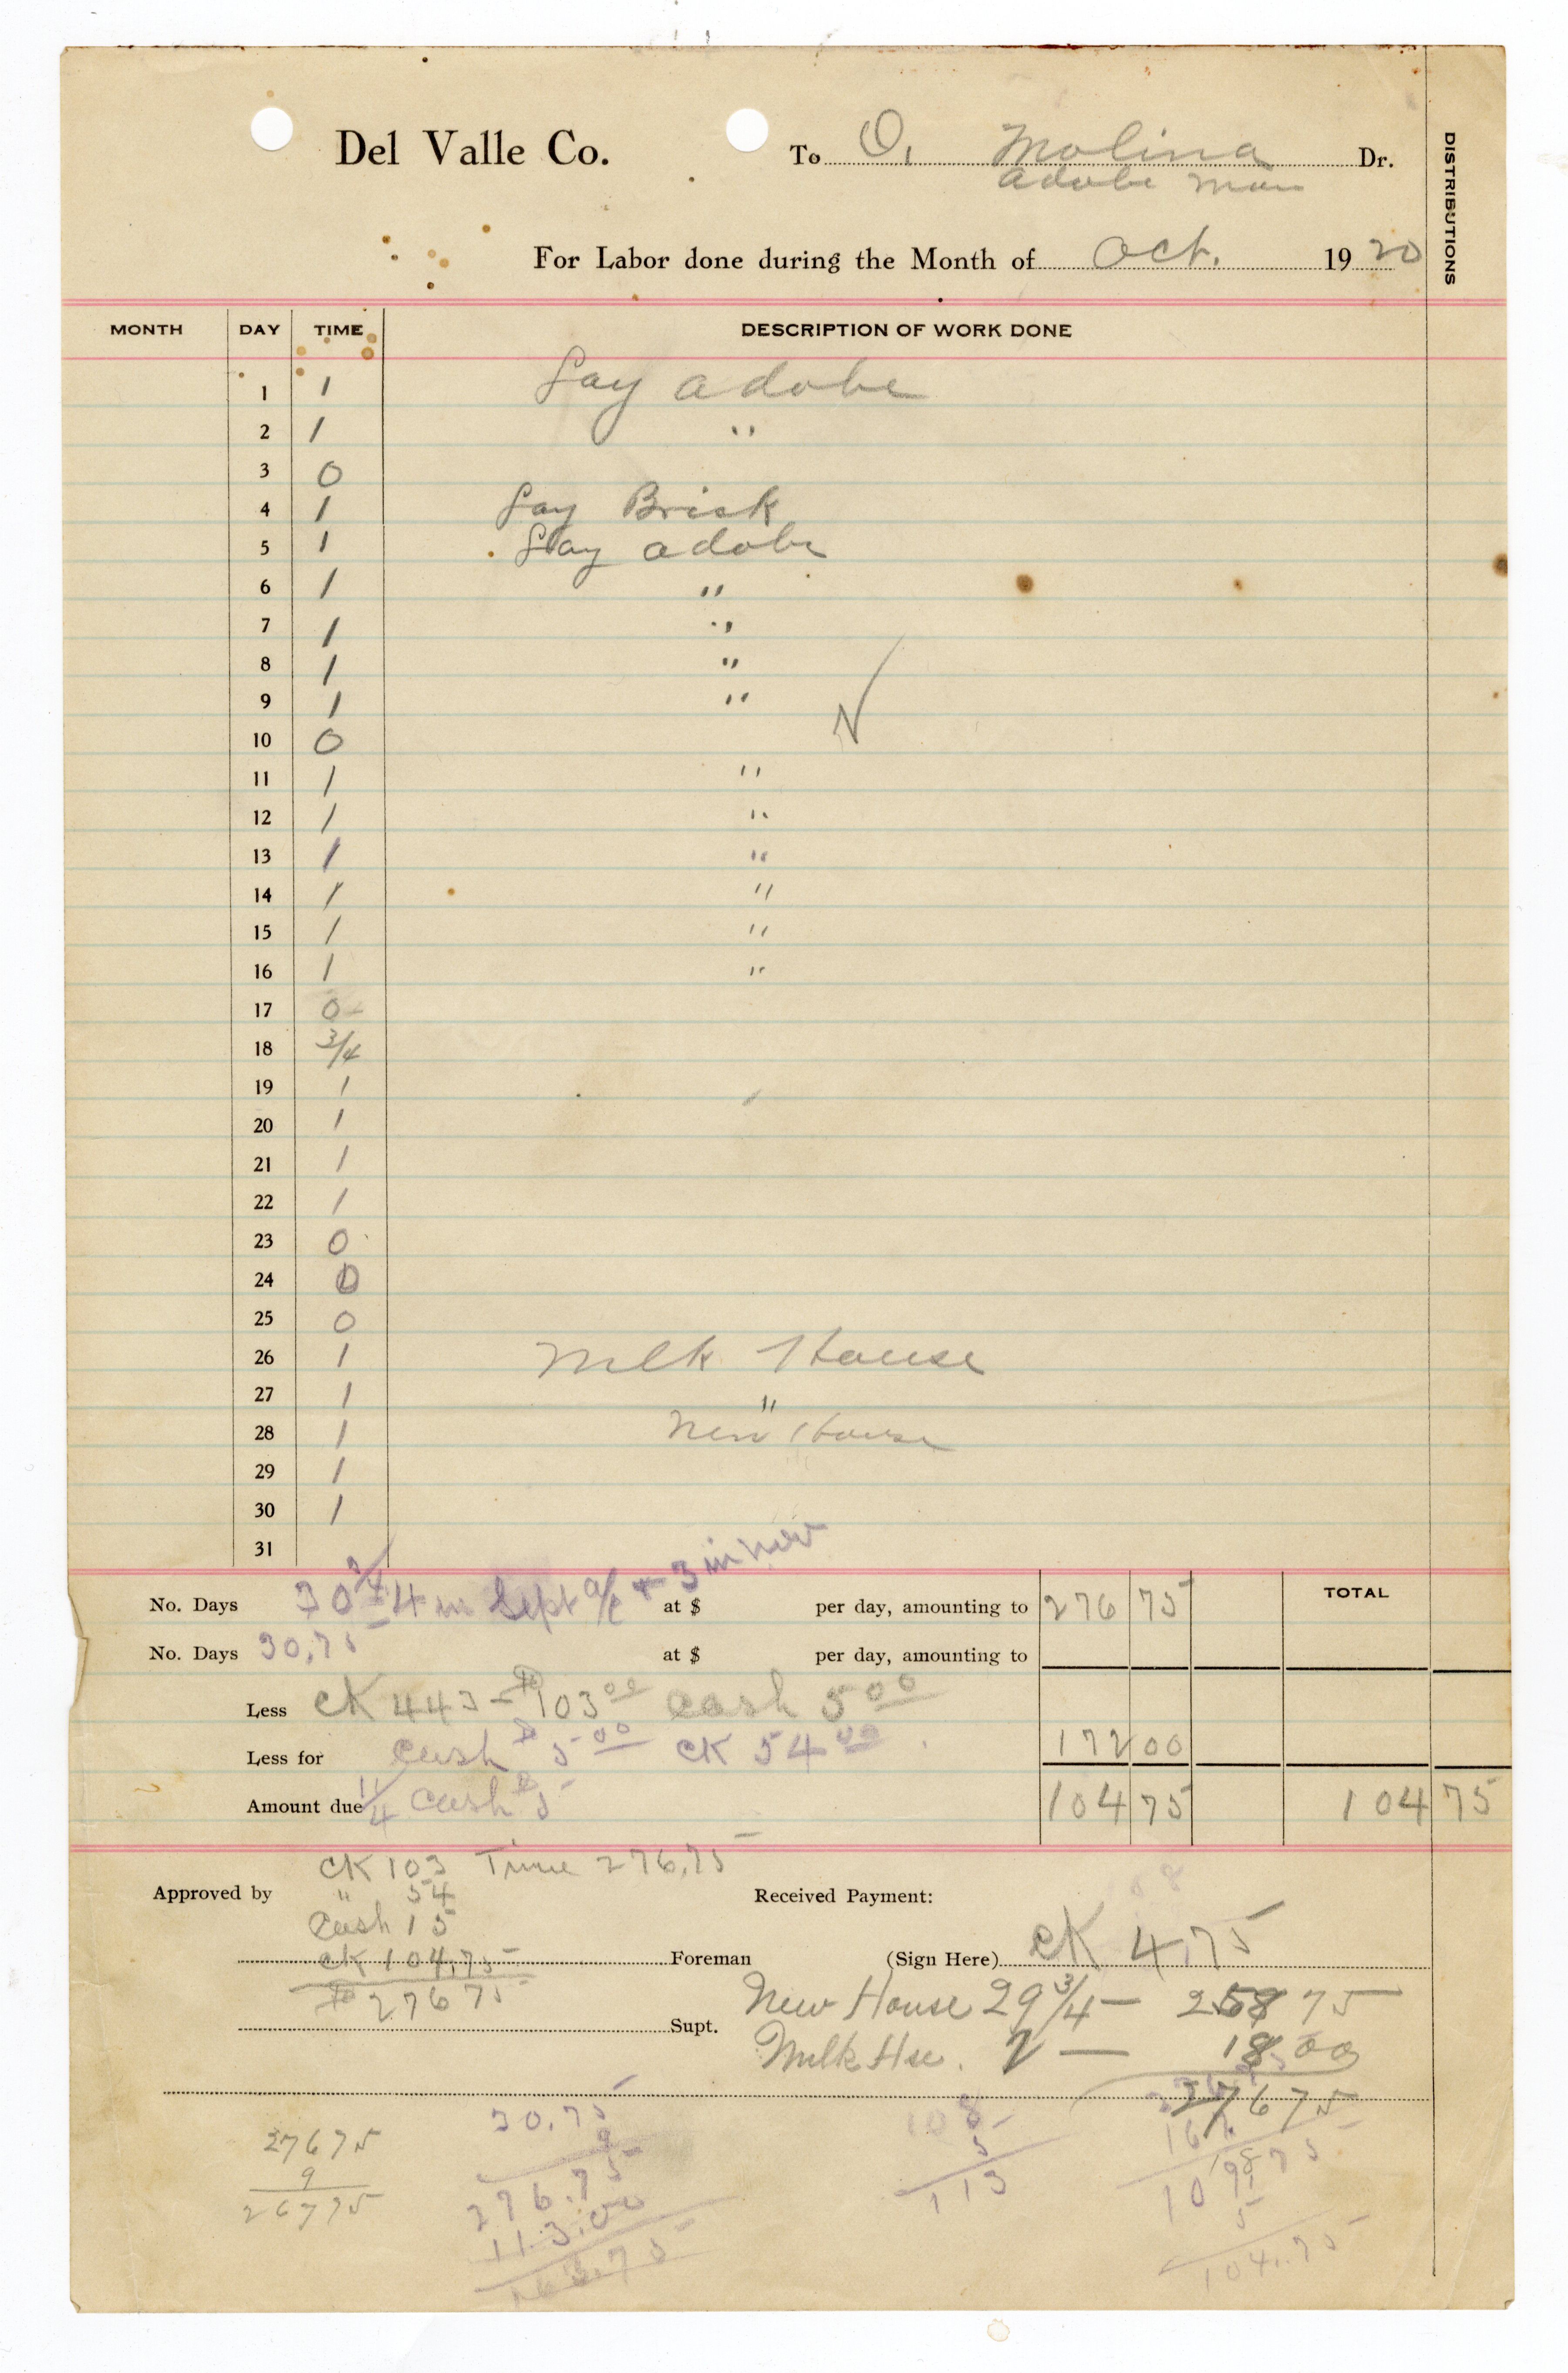 Del Valle Co. To O. Molina Dr.
adobe man
For Labor done during the Month of Oct. 1920
DISTRIBUTIONS
MONTH DAY TIME DESCRIPTION OF WORK DONE
1 1 Lay adobe
2 1 "
3 0
4 1 Lay Brick
5 1 Lay adobe
6 1 "
7 1 "
8 1 "
9 1 "
10 0
11 1 "
12 1 "
13 1 "
14 1 "
15 1 "
16 1 "
17 0
18 3/4
19 1
20 1
21 1
22 1
23 0
24 0
25 0
26 1 Milk House
27 1 "
28 1 New House
29 1
30 1
31
No. Days 30 3/4 4 in Sept a/c + 3 in Nov at $ per day, amounting to 276 75 TOTAL
No. Days 30.75 at $ per day, amounting to
Less CK 443 - $103 00 Cash 5 00
Less for Cash $5 00 CK 54 00 172 00
Amount due 11/4 Cash $5 104 75 104 75
CK 103 Time 276.75
Approved by " 54 Received Payment:
Cash 15
CK 104.75 Foreman (Sign Here) CK 4.75
$276 75 New House 29 3/4 - 258 75
Supt. Milk Hse. 2 - 18 00
276 75
27675
9
26775
30.75
9
276.75
113.00
163.75
108
5
113
5
104.75